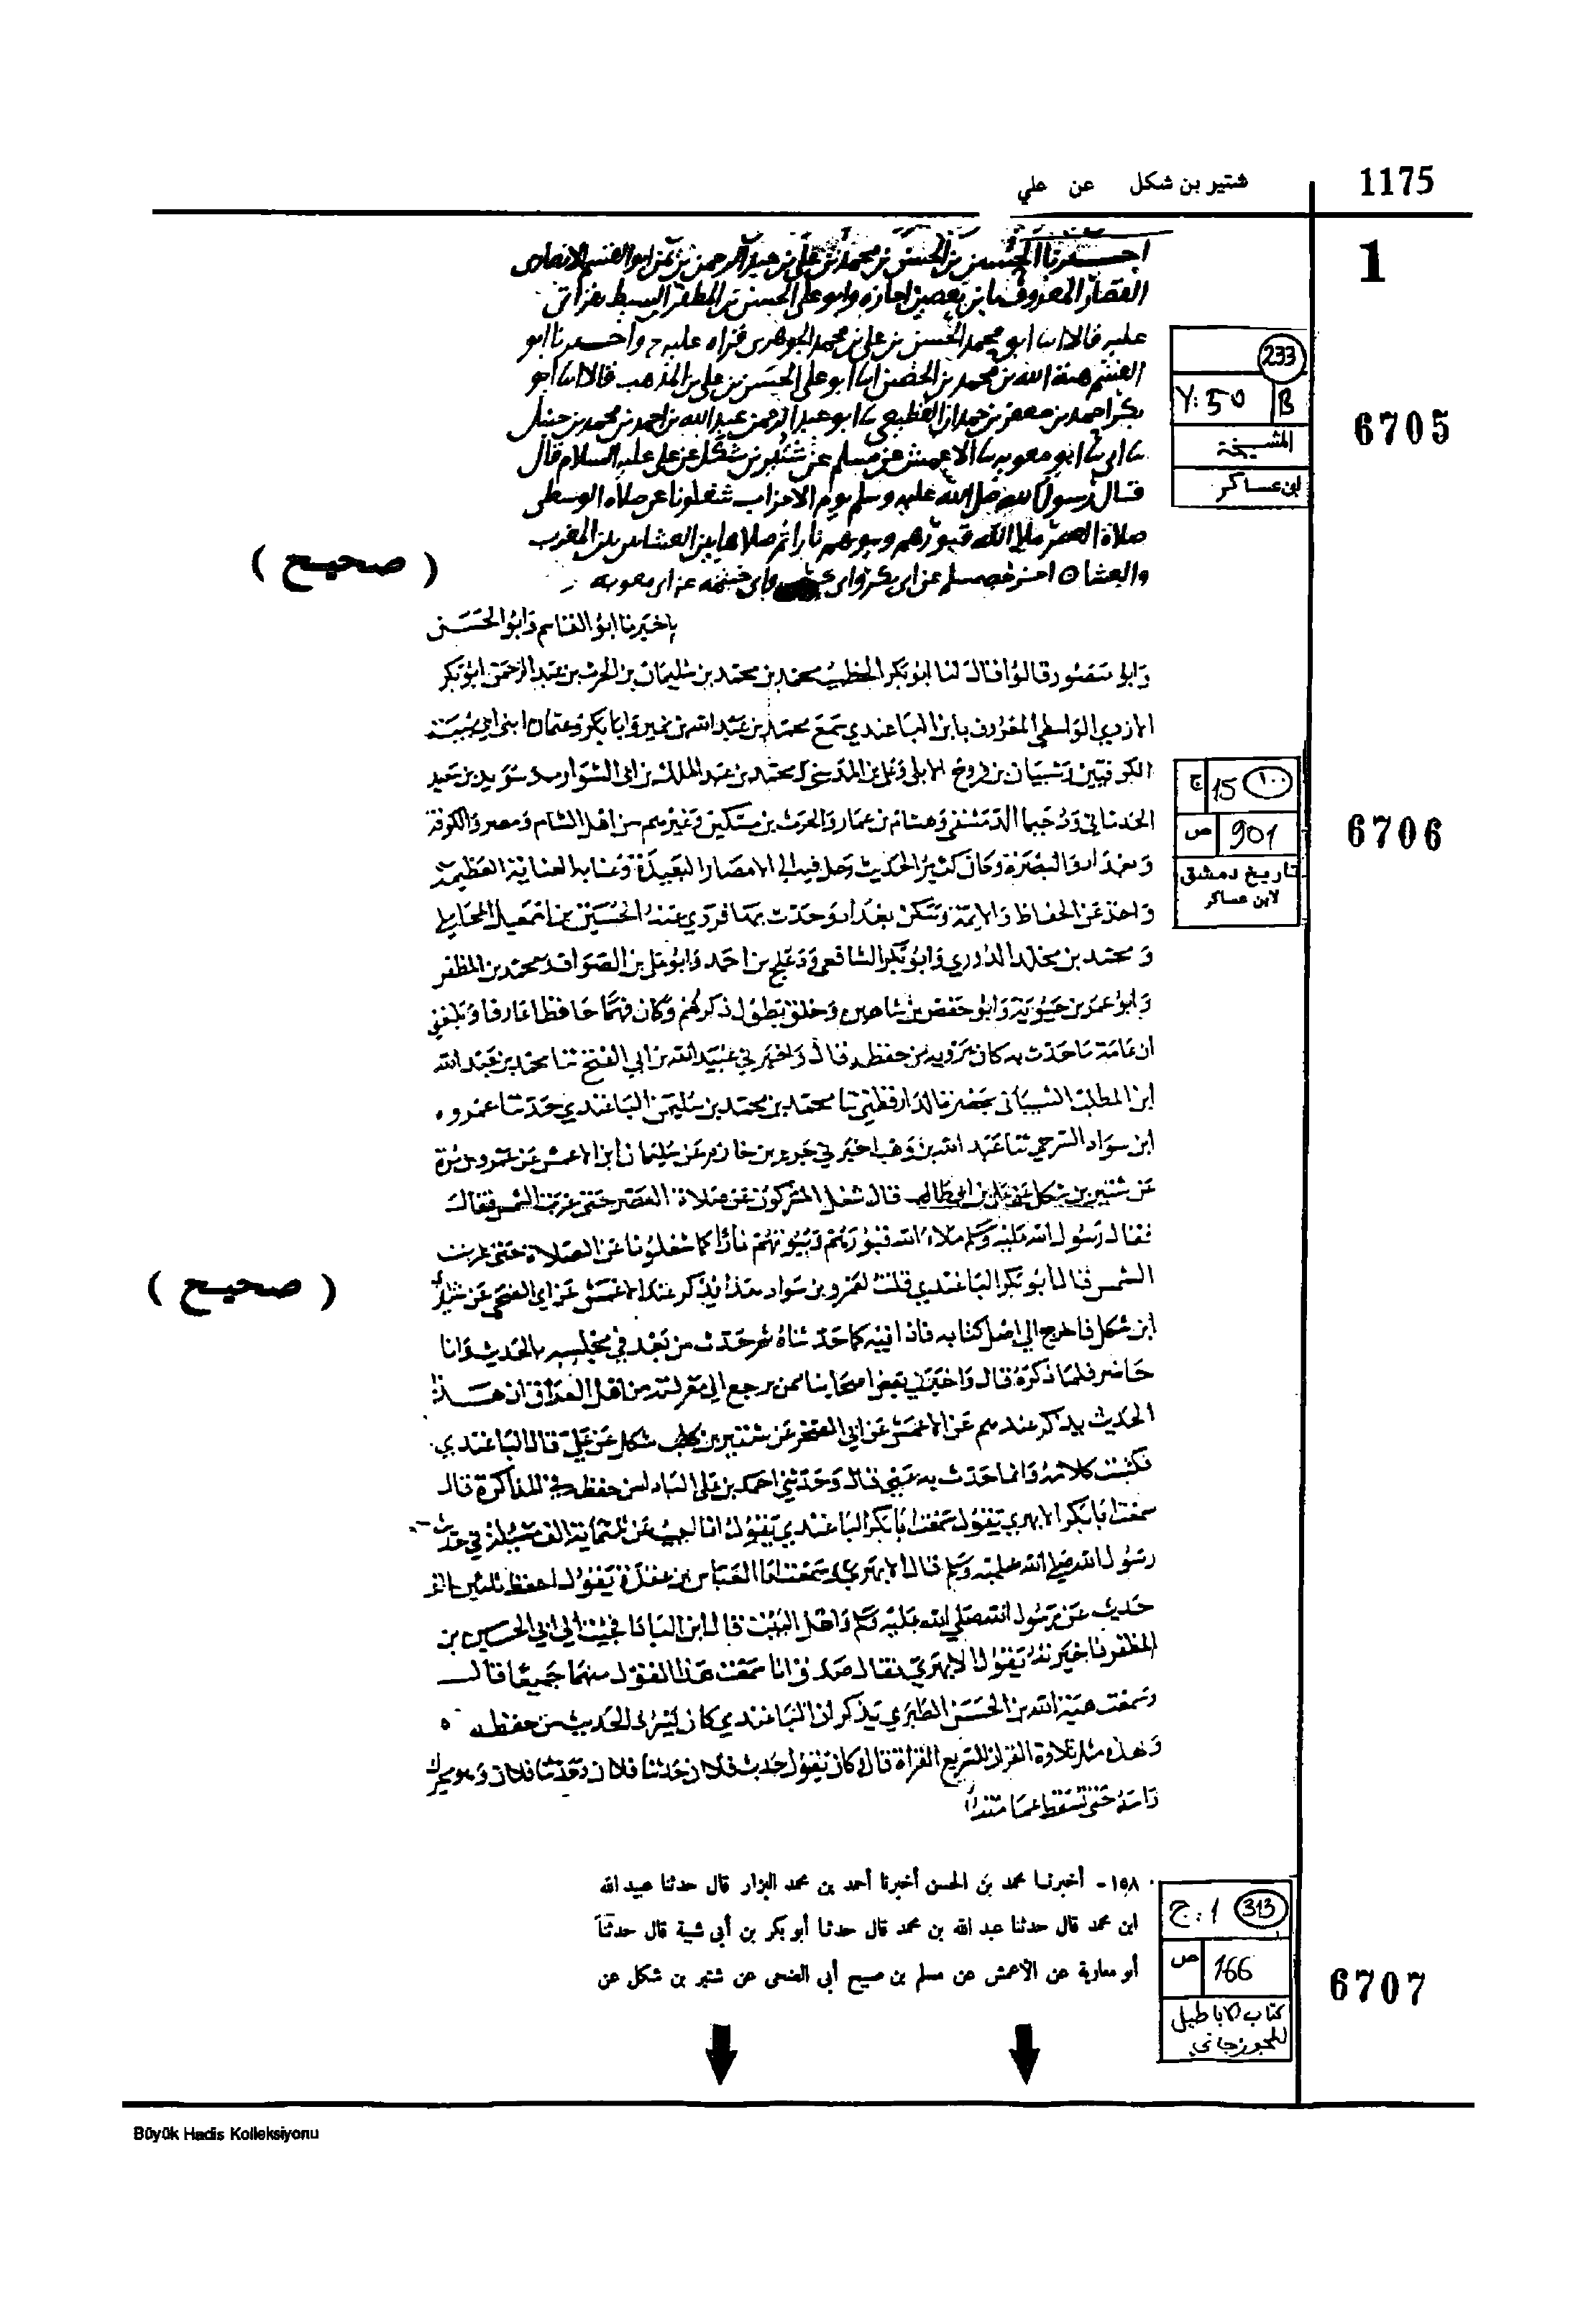 1175
شتير بن شكل عن علي
1
اخبرنا الحسين بن الحسن بن محمد بن علي بن عبد الرحمن بن ابو القسم الانصاري
القصار المعروف بابن اجازه وابو علي الحسن بن المظفر
عليه قالا ابنا ابو محمد الحسن بن علي بن محمد الجوهري قراه عليه ح واخبرنا ابو
القسم هبة الله بن محمد بن الحصين ابنا ابو علي الحسن بن علي بن المذهب قالا ابنا ابو
بكر احمد بن جعفر بن حمدان القطيعي ثنا ابو عبد الرحمن عبد الله بن احمد بن محمد بن حنبل
ثنا ابي ثنا ابو معويه ثنا الاعمش عن مسلم عن شتير بن شكل عن علي عليه السلام قال
قال رسول الله صلى الله عليه وسلم يوم الاحزاب شغلونا عن صلاه الوسطى
صلاة العصر ملا الله قبورهم وبيوتهم نارا ثم صلاها بين العشاين بين المغرب
والعشا ٥ اخرجه مسلم عن ابي بكر وابي وابي خيثمه عن ابي معويه
( صحيح )
233
Y: 50
B
المشيخة
ابن عساكر
6705
اخبرنا ابو القاسم وابو الحسن
وابو منصور قالوا قال لنا ابو بكر الخطيب محمد بن محمد بن سليمان بن الحرث بن عبد الرحمن ابو بكر
الازدي الواسطي المعروف بابن الباغندي سمع محمد بن عبد الله بن نمير وابا بكر وعثمان ابني ابي شيبة
الكوفيين وشيبان بن فروخ الابلي وعلي بن المديني ومحمد بن عبد الملك بن ابي الشوارب وسويد بن سعيد
الحدثاني ودحيما الدمشقي وهشام بن عمار والحرث بن مسكين وغيرهم من اهل الشام ومصر والكوفة
وبغداد والبصرة وكان كثير الحديث رحل فيه الى الامصار البعيدة وعني به العناية العظيمة
واخذ عن الحفاظ والايمة وسكن بغداد وحدث بها فروي عنه الحسين بن اسمعيل المحاملي
ومحمد بن مخلد الدوري وابو بكر الشافعي ودعلج بن احمد وابو علي بن الصواف ومحمد بن المظفر
وابو عمر بن حيوية وابو حفص بن شاهين وخلق يطول ذكرهم وكان فهما حافظا عارفا وبلغني
ان عامة ما حدث به كان يرويه من حفظه قال واخبرني عبيد الله بن ابي الفتح ثنا محمد بن عبد الله
ابن المطلب الشيباني بحضرة الدارقطني ثنا محمد بن محمد بن سليمن الباغندي حدثنا عمرو
ابن سواد السرحي ثنا عبد الله بن وهب اخبرني جرير بن حازم عن سليمان الاعمش عن عمرو بن مرة
عن شتير بن شكل عن علي بن ابي طالب قال شغل المشركون عن صلاة العصر حتى غربت الشمس فقال
فقال رسول الله عليه وسلم ملاء الله قبورهم وبيوتهم نارا كما شغلونا عن الصلاة حتى غربت
الشمس قال ابو بكر الباغندي قلت لعمرو بن سواد هذا يذكر عند الاعمش عن ابي الضحى عن شتير
ابن شكل فاخرج الي اصل كتابه فاذا فيه كما حدثناه ثم حدث من بعد في مجلسه بالحديث وانا
حاضر فلما ذكره قال واخبرني بعض اصحابنا ممن يرجع الى معرفته من اهل العراق ان هذا
الحديث يذاكر عندهم عن الاعمش عن ابي الضحى عن شتير بن شكل عن علي قال الباغندي
فكتبت كلامه وانما حدث به عني قال وحدثني احمد بن علي الباد من حفظه في المذاكرة قال
سمعت ابا بكر الابهري يقول سمعت ابا بكر الباغندي يقول انا اجيب عن ثلثماية الف مسئلة في حديث
رسول الله صلى الله عليه وسلم قال الابهري وسمعت ابا العباس بن عقدة يقول احفظ ثلثين الف
حديث عن رسول الله صلى الله عليه وسلم واهل البيت قال ابن البادا فجيت الى ابي الحسين بن
المظفر فاخبرته بقول الابهري فقال صدق انا سمعت هذا القول منهما جميعا قال
وسمعت هبة الله بن الحسن الطبري يذكر ان الباغندي كان يسرد الحديث من حفظه ٥
وهذه مثل تلاوة القران للسريع القراة قال وكان يقول حدث فلان حدثنا فلان وحدثنا فلان وهو يحرك
راسه حتى تسقط عمامته
( صحيح )
١٠٠
15
ج
901
ص
تاريخ دمشق
لابن عساكر
6706
١٥٨ - أخبرنا محمد بن الحسن أخبرنا أحمد بن محمد البزار قال حدثنا عبيد الله
ابن محمد قال حدثنا عبد الله بن محمد قال حدثنا أبو بكر بن أبي شيبة قال حدثنا
أبو معاوية عن الأعمش عن مسلم بن صبيح أبي الضحى عن شتير بن شكل عن
313
ج: 1
166
ص
كتاب الاباطيل
للجوزجاني
6707
Büyük Hadis Kolleksiyonu